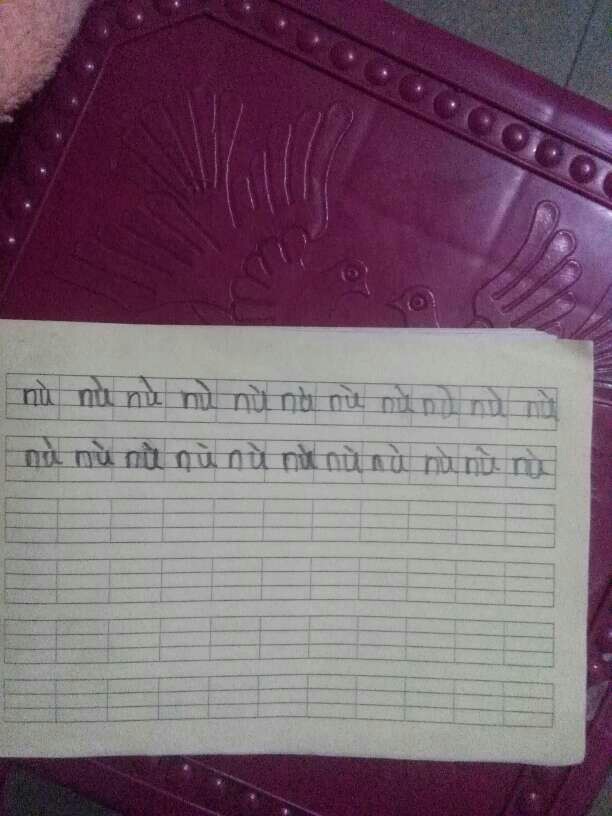 nù nù nù nù nù nù nù nù nù nù nù
nù nù nù nù nù nù nù nù nù nù nù